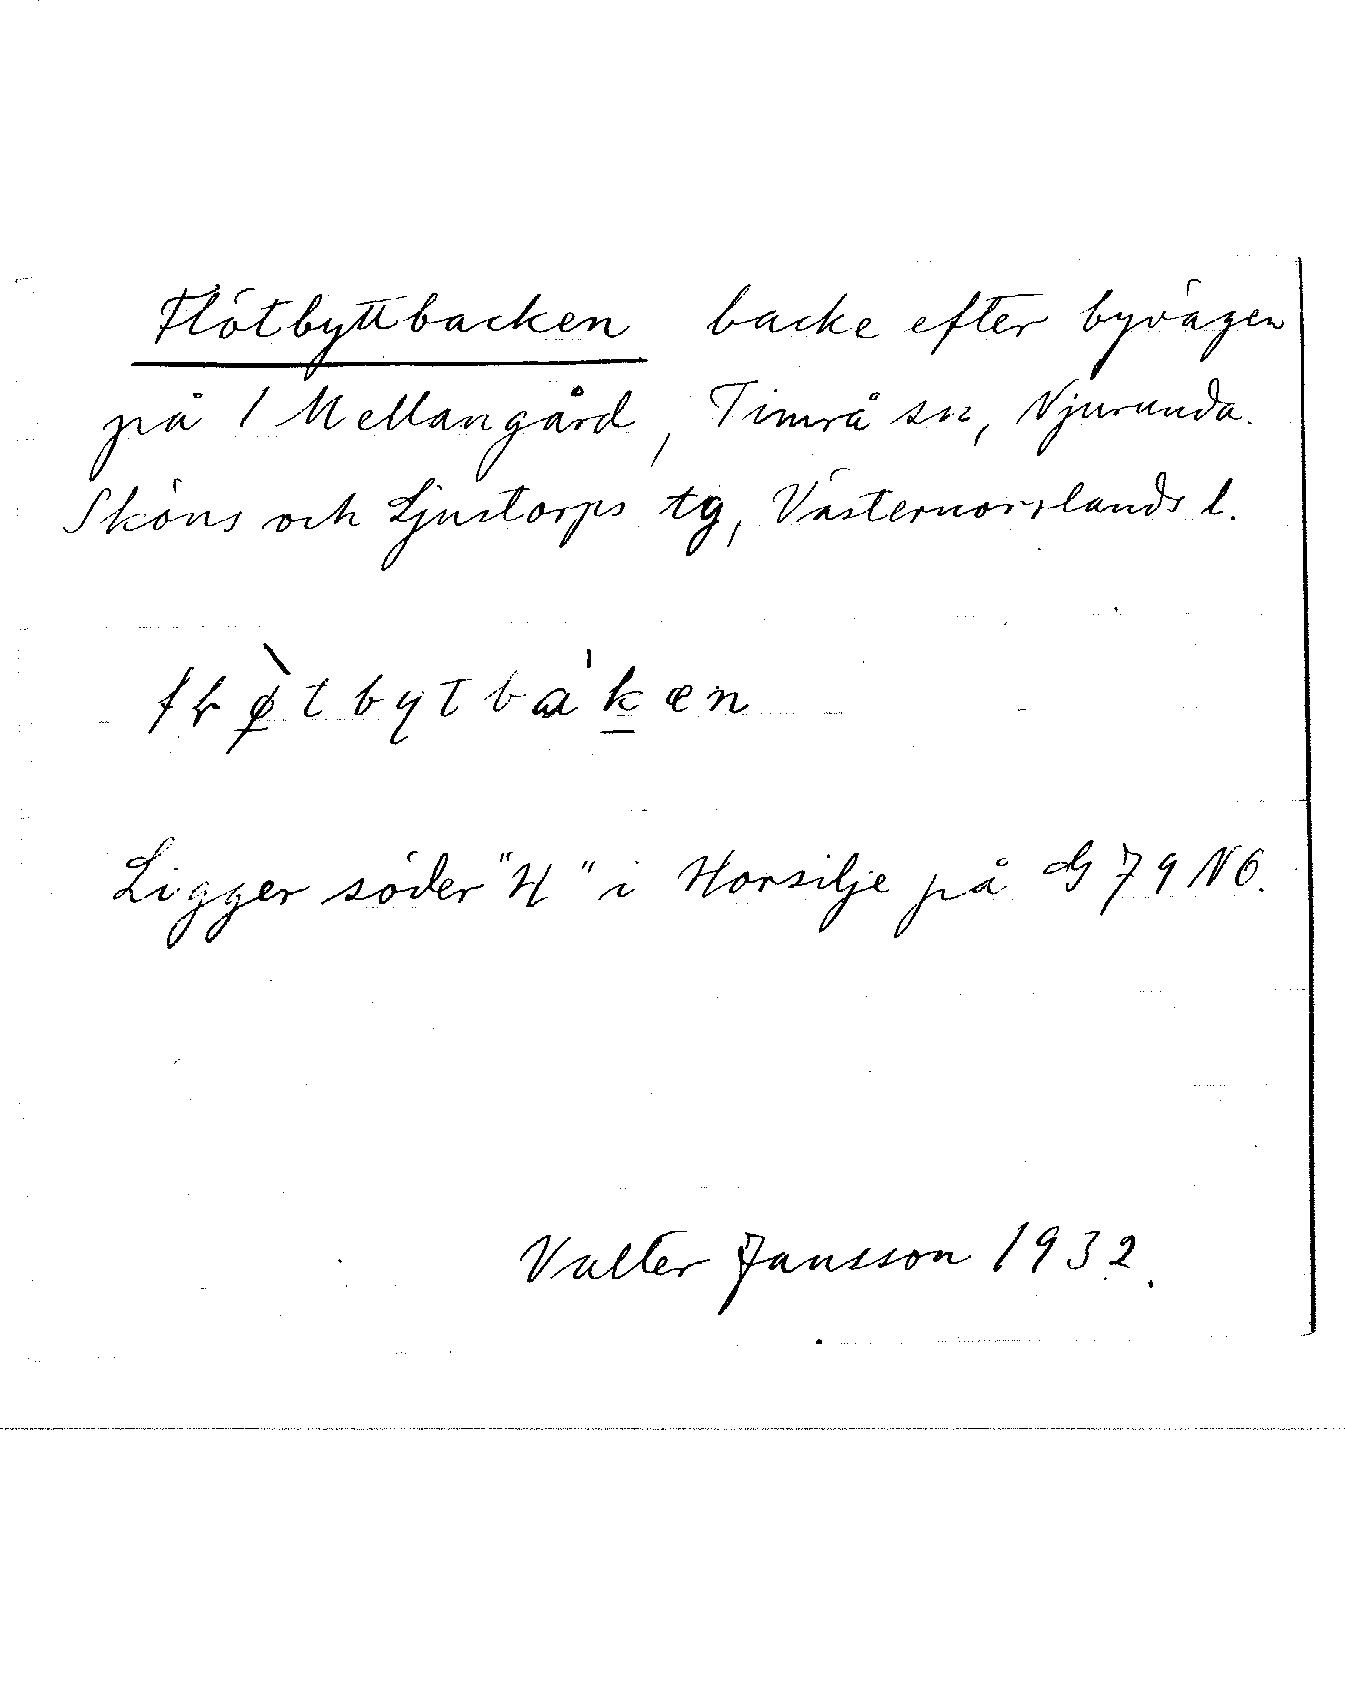 Flötbyttbacken backe efter byvägen
på 1 Mellangård, Timrå sn, Njurunda.
Sköns och Ljustorps tg, Västernorrlands l.
Ligger söder "H" i Horsilje på G 79 NO.
Valter Jansson 1932.